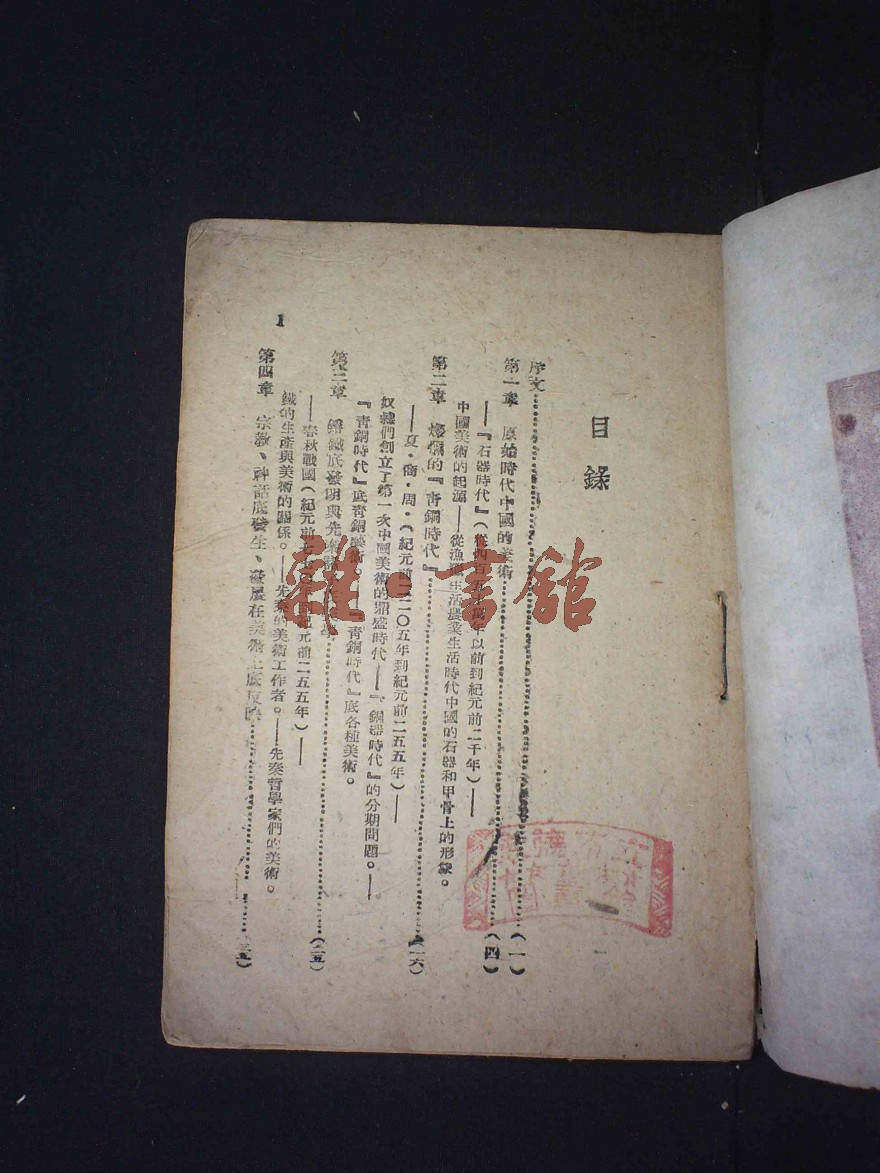 目錄
序文……(一)
第一章 原始時代中國的美術……(四)
——『石器時代』(從四百五十萬年以前到紀元前二千年)——
中國美術的起源——從漁獵生活農業生活時代中國的石器和甲骨上的形象。
第二章 燦爛的『青銅時代』……(一六)
——夏・商・周・(紀元前二二〇五年到紀元前二五五年)——
奴隸們創立了第一次中國美術的鼎盛時代——『銅器時代』的分期問題。——
『青銅時代』底青銅藝術。——『青銅時代』底各種美術。
第三章 鎔鐵底發明與先秦諸 學……(二五)
——春秋戰國(紀元前七七〇年到紀元前二五五年)——
鐵的生產與美術的關係。——先秦的美術工作者。——先秦哲學家們的美術。
第四章 宗教、神話底發生、發展在美術上底反映……
1
雜書館